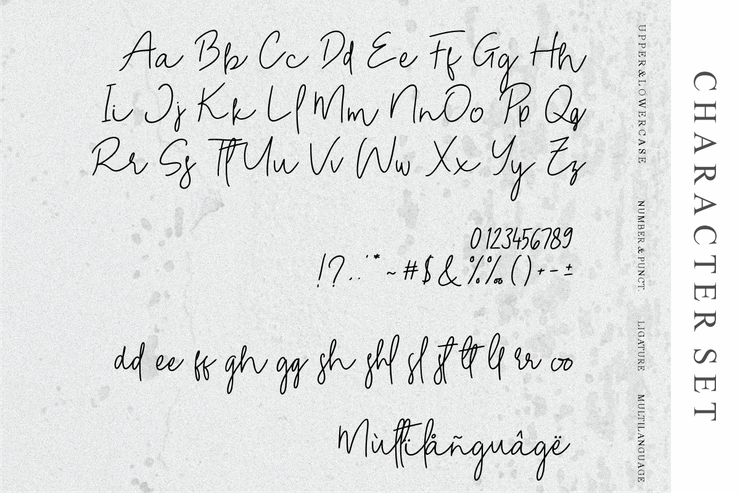 Aa Bb Cc Dd Ee Ff Gg Hh
Ii Jj Kk Ll Mm Nn Oo Pp Qq
Rr Ss Tt Uu Vv Ww Xx Yy Zz
0123456789
!?..'"*~#$&%‰()+-±
dd ee ff gh gg sh shl sl st tt ll rr oo
Mùltilåñguâgë
UPPER & LOWERCASE
NUMBER & PUNCT.
LIGATURE
MULTILANGUAGE
CHARACTER SET